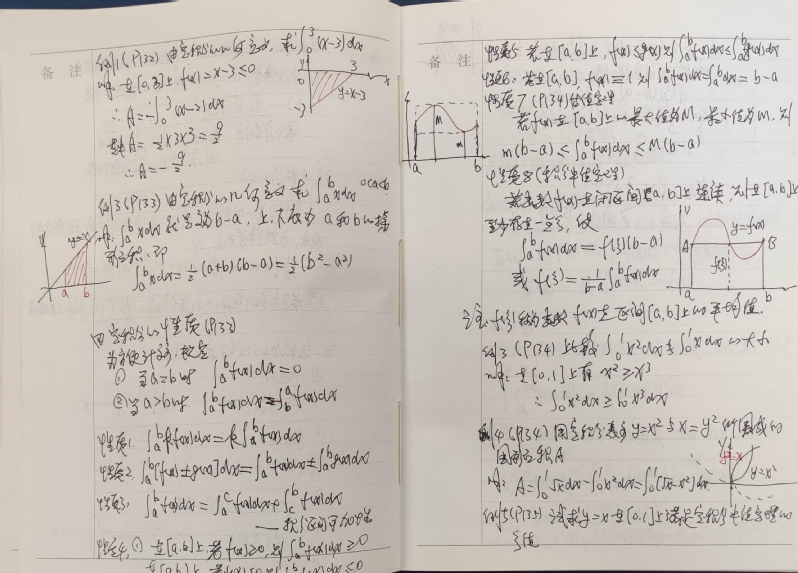 备 注
例1(P132) 由定积分几何意义,求∫₀³(x-3)dx
解:在[0,3]上f(x)=x-3≤0
∴ A=-∫₀³(x-3)dx
A=½×3×3=9/2
∴ A=-9/2.
y
0
3
x
y=x-3
-3
例3(P133) 由定积分几何意义 求∫ₐᵇxdx 0<a<b
解:∫ₐᵇxdx 高为b-a,上、下底为a和b的梯
形面积,即
∫ₐᵇxdx=½(a+b)(b-a)=½(b²-a²)
y
y=x
a b
四 定积分的性质(P133)
为方便计算,规定
① 当a=b时 ∫ₐᵇf(x)dx=0
② 当a>b时 ∫ₐᵇf(x)dx=-∫_b^a f(x)dx
性质1. ∫ₐᵇkf(x)dx=k∫ₐᵇf(x)dx
性质2. ∫ₐᵇ[f(x)±g(x)]dx=∫ₐᵇf(x)dx±∫ₐᵇg(x)dx
性质3. ∫ₐᵇf(x)dx=∫_a^c f(x)dx+∫_c^b f(x)dx
——积分区间可加性
性质4. ① 在[a,b]上,若f(x)≥0,则∫ₐᵇf(x)dx≥0
在[a,b]上,若f(x)≤0,则∫ₐᵇf(x)dx≤0
备 注
性质5 若在[a,b]上,f(x)≤g(x)则∫ₐᵇf(x)dx≤∫ₐᵇg(x)dx
性质6. 若在[a,b] f(x)=1 则∫ₐᵇf(x)dx=∫ₐᵇdx=b-a
性质7(P134)估值定理
若f(x)在[a,b]上的最大值为M,最小值为m,则
m(b-a)≤∫ₐᵇf(x)dx≤M(b-a)
M
m
a
b
性质8(积分中值定理)
若函数f(x)在闭区间[a,b]上连续,则在[a,b]上
至少存在一点ξ,使
∫ₐᵇf(x)dx=f(ξ)(b-a)
或 f(ξ)=1/(b-a)∫ₐᵇf(x)dx
y
y=f(x)
A
B
f(ξ)
a
b
注:f(ξ)称为函数f(x)在区间[a,b]上的平均值.
例3(P134) 比较∫₀¹x²dx与∫₀¹x³dx的大小
解:在[0,1]上有x²≥x³
∴ ∫₀¹x²dx≥∫₀¹x³dx
例4(P134) 用定积分表示y=x²与x=y²所围成的
图形面积A
解:A=∫₀¹√x dx-∫₀¹x²dx=∫₀¹(√x-x²)dx
y=x²
例5(P135) 试求y=x在[0,1]上满足定积分中值定理的
ξ值